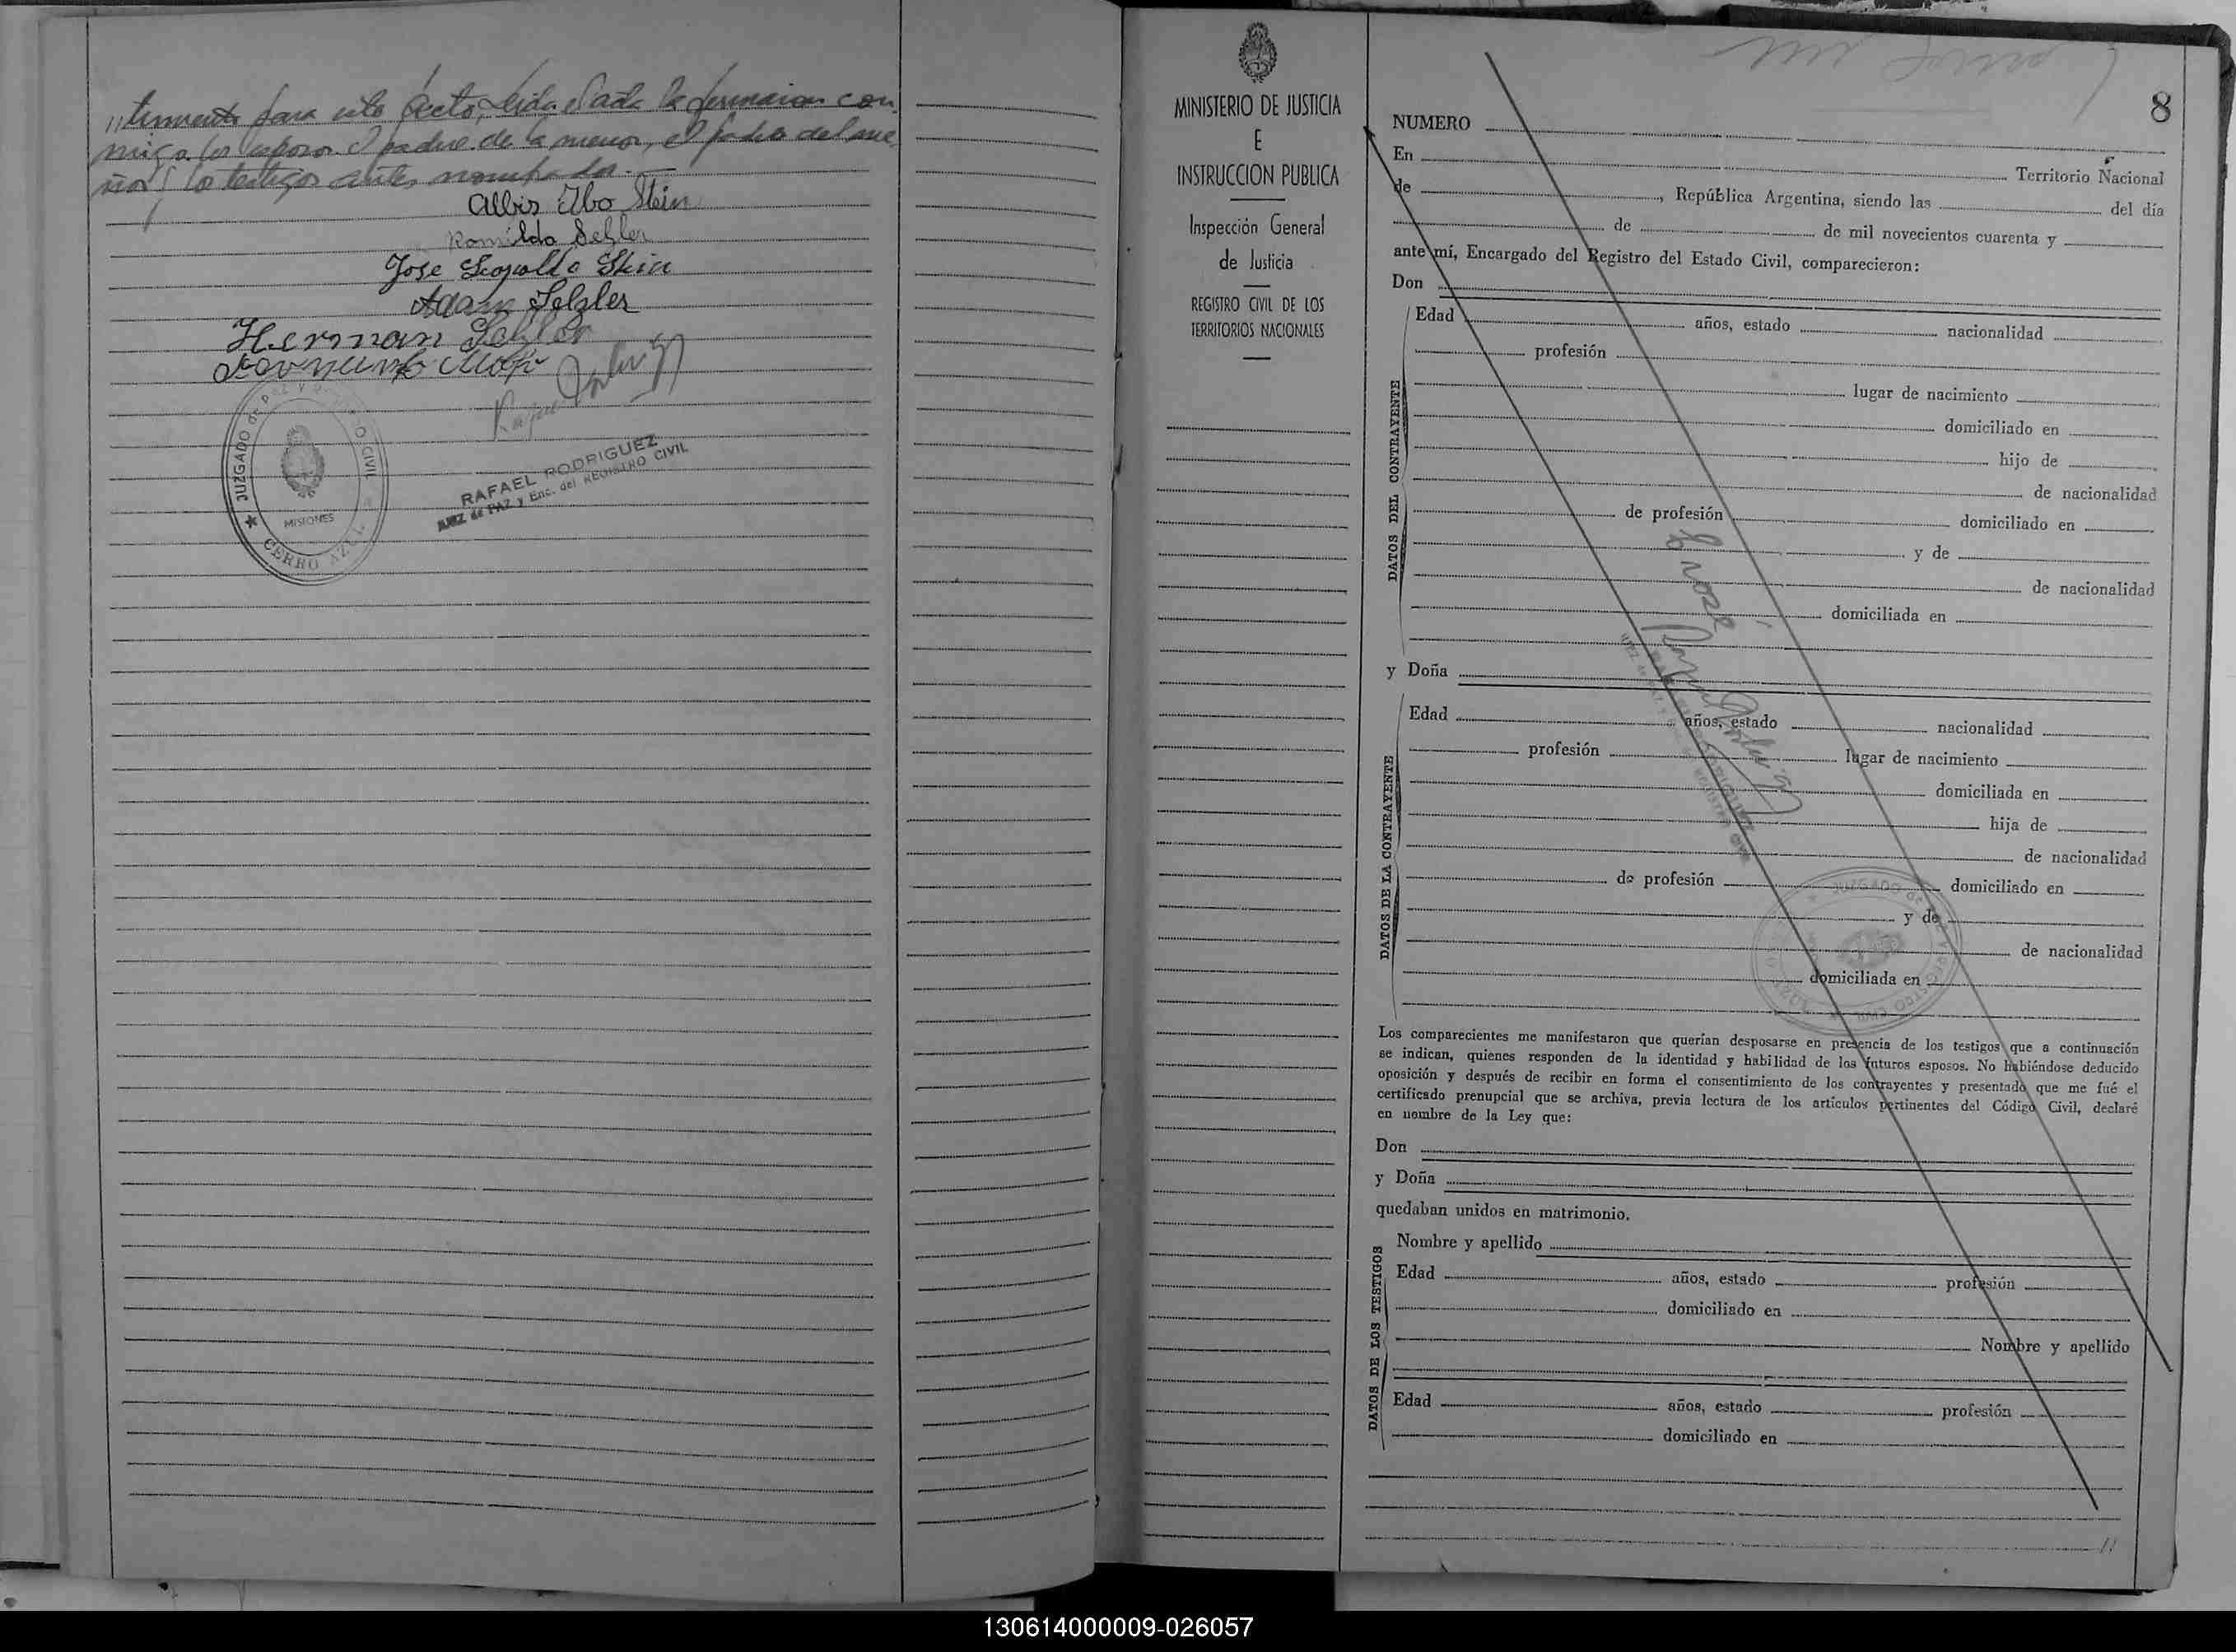 timiento para este acto, Leida el acta la firmaron con
migo los esposos el padre de la menor, el padre del me
nor y los testigos antes nombrados.
Albis Ilbo Stein
Romilda Sehler
Jose Leopoldo Stein
Adam Selzler
Herman
JUZGADO de PAZ Y REGISTRO CIVIL
MISIONES
CERRO AZUL
RAFAEL RODRIGUEZ
JUEZ de PAZ y Enc. del REGISTRO CIVIL
MINISTERIO DE JUSTICIA
E
INSTRUCCION PUBLICA
Inspección General
de Justicia
REGISTRO CIVIL DE LOS
TERRITORIOS NACIONALES
8
NUMERO
En Territorio Nacional
de , República Argentina, siendo las del día
de de mil novecientos cuarenta y
ante mí, Encargado del Registro del Estado Civil, comparecieron:
Don
DATOS DEL CONTRAYENTE
Edad años, estado nacionalidad
profesión
lugar de nacimiento
domiciliado en
hijo de
de nacionalidad
de profesión domiciliado en
y de
de nacionalidad
domiciliada en
y Doña
DATOS DE LA CONTRAYENTE
Edad años, estado nacionalidad
profesión lugar de nacimiento
domiciliada en
hija de
de nacionalidad
de profesión domiciliado en
y de
de nacionalidad
domiciliada en
Erosé
JUZGADO de
Los comparecientes me manifestaron que querían desposarse en presencia de los testigos que a continuación
se indican, quienes responden de la identidad y habilidad de los futuros esposos. No habiéndose deducido
oposición y después de recibir en forma el consentimiento de los contrayentes y presentado que me fué el
certificado prenupcial que se archiva, previa lectura de los artículos pertinentes del Código Civil, declaré
en nombre de la Ley que:
Don
y Doña
quedaban unidos en matrimonio.
DATOS DE LOS TESTIGOS
Nombre y apellido
Edad años, estado profesión
domiciliado en
Nombre y apellido
Edad años, estado profesión
domiciliado en
130614000009-026057